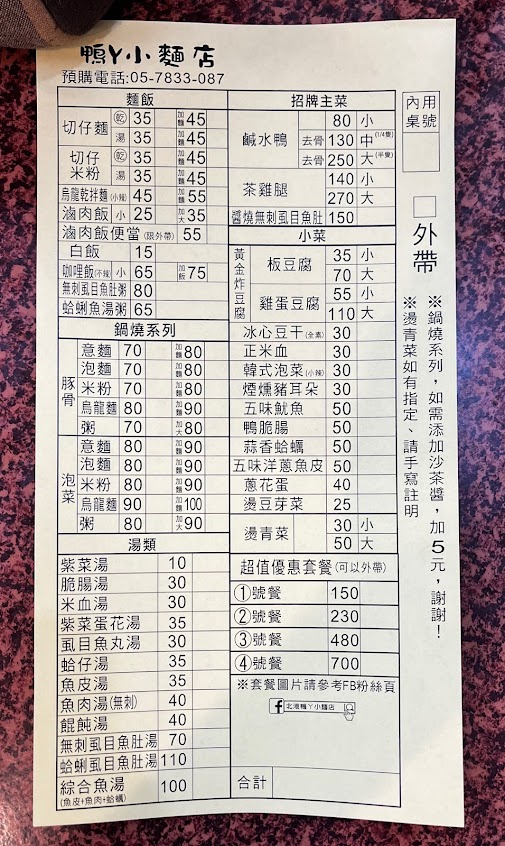 鴨丫小麵店
預購電話:05-7833-087
麵飯
切仔麵 乾 35 加麵45
湯 35 加麵45
切仔米粉 乾 35 加麵45
湯 35 加麵45
烏龍乾拌麵(小辣) 45 加麵55
滷肉飯 小 25 加大35
滷肉飯便當(限外帶) 55
白飯 15
咖哩飯(不辣) 小 65 加飯75
無刺虱目魚肚粥 80
蛤蜊魚湯粥 65
鍋燒系列
豚骨
意麵 70 加麵80
泡麵 70 加麵80
米粉 70 加麵80
烏龍麵 80 加麵90
粥 70 加大80
泡菜
意麵 80 加麵90
泡麵 80 加麵90
米粉 80 加麵90
烏龍麵 90 加麵100
粥 80 加大90
湯類
紫菜湯 10
脆腸湯 30
米血湯 30
紫菜蛋花湯 35
虱目魚丸湯 30
蛤仔湯 35
魚皮湯 35
魚肉湯(無刺) 40
餛飩湯 40
無刺虱目魚肚湯 70
蛤蜊虱目魚肚湯 110
綜合魚湯 100
(魚皮+魚肉+蛤蠣)
招牌主菜
鹹水鴨 80 小
去骨 130 中(1/4隻)
去骨 250 大(半隻)
茶雞腿 140 小
270 大
醬燒無刺虱目魚肚 150
小菜
黃金炸豆腐
板豆腐 35 小
70 大
雞蛋豆腐 55 小
110 大
冰心豆干(全素) 30
正米血 30
韓式泡菜(小辣) 30
煙燻豬耳朵 30
五味魷魚 50
鴨脆腸 50
蒜香蛤蠣 50
五味洋蔥魚皮 50
蔥花蛋 40
燙豆芽菜 25
燙青菜 30 小
50 大
超值優惠套餐(可以外帶)
①號餐 150
②號餐 230
③號餐 480
④號餐 700
※套餐圖片請參考FB粉絲頁
f 北港鴨丫小麵店
合計
內用桌號
□外帶
※鍋燒系列，如需添加沙茶醬，加5元，謝謝！
※燙青菜如有指定、請手寫註明